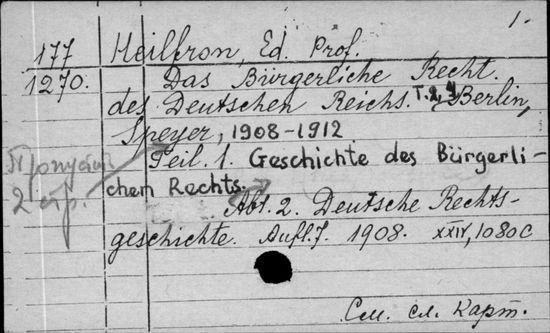 1.
177 Heilfron, Ed. Prof.
1270. Das Bürgerliche Recht
des Deutschen Reichs. T. 2, 4 Berlin,
Speyer, 1908-1912
Teil. 1. Geschichte des Bürgerli-
chem Rechts.
Abt. 2. Deutsche Rechts-
geschichte. Aufl. 7. 1908. XXIV, 1080 C
См. сл. карт.
2 стр.